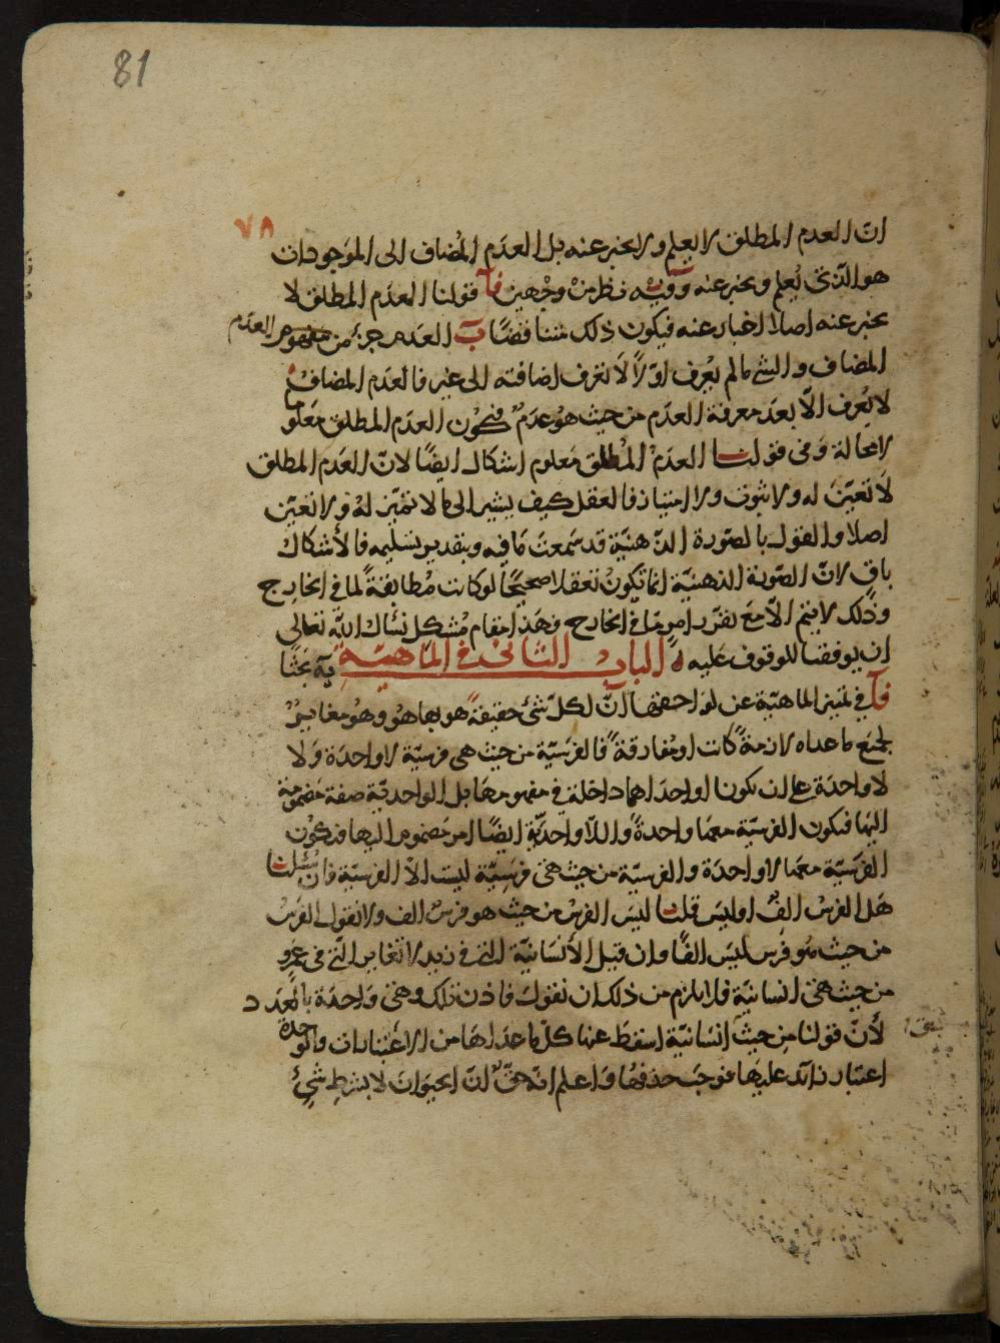 81
٧٨
انّ العدم المطلق لا يعلم ولا يخبر عنه بل العدم المضاف الى الموجودات
هو الذى يُعلم ويخبر عنه وفيه نظر من وجهين آ قولنا العدم المطلق لا
يخبر عنه اصلا اخبار عنه فيكون ذلك متناقضًا ب العدم جزء من مفهوم العدم
المضاف والشئ ما لم يُعرف اوّلاً لا تعرف اضافته الى غيره فالعدم المضاف
لا يُعرف الّا بعد معرفة العدم من حيث هو عدمٌ فيكون العدم المطلق معلو
لا محالة وفى قولنا العدم المطلق معلوم اشكال ايضًا لانّ العدم المطلق
لا تعيّن له ولا ثبوت ولا امتياز فالعقل كيف يشير الى ما لا تميّز له ولا تعيّن
اصلا والقول بالصّورة الذهنيّة قد سمعت ما فيه وبتقدير تسليمه فالأشكال
باقٍ لانّ الصّورة الذهنيّة انما تكون تعقلا صحيحًا لو كانت مطابقةً لما فى الخارج
وذلك لا يتم الّا مع تقرّر امرٍ مّا فى الخارج وهذا مقام مشكل نسأل الله تعالى
ان يوفقنا للوقوف عليه الباب الثانى فى الماهيّة فيه بحثا
آ فى تميز الماهيّة عن لواحقها انّ لكلّ شئ حقيقةً هو بها هو وهو مغايرٌ
لجميع ما عداه لازمةً كانت او مفارقةً فالفرسيّة من حيث هى فرسيّة لا واحدة ولا
لا واحدة على ان يكونا او احداهما داخلة فى مفهومها بل الواحديّة صفة مضمومة
اليها فيكون الفرسيّة معها واحدةً واللاواحديّة ايضًا امر مضموم اليها فيكون
الفرسيّة معها لا واحدة والفرسيّة من حيث هى فرسيّة ليست الّا الفرسيّة فان سُئلنا
هل الفرس الفٌ او ليس قلنا ليس الفرس من حيث هو فرس الف ولا نقول الفرس
من حيث هو فرس ليس الفًا وان قيل الأنسانيّة التى فى زيد لا تغاير الّتى فى عمرو
من حيث هى انسانيّة فلا يلزم من ذلك ان نقول فاذن تلك وهى واحدة بالعدد
لأنّ قولنا من حيث انسانيّة اسقط عنها كلّ ما عداها من الاعتبارات والوحدة
اعتبار زائد عليها فوجب حذفها واعلم انه حقٌّ انّ الحيوان لا بشرط شئ